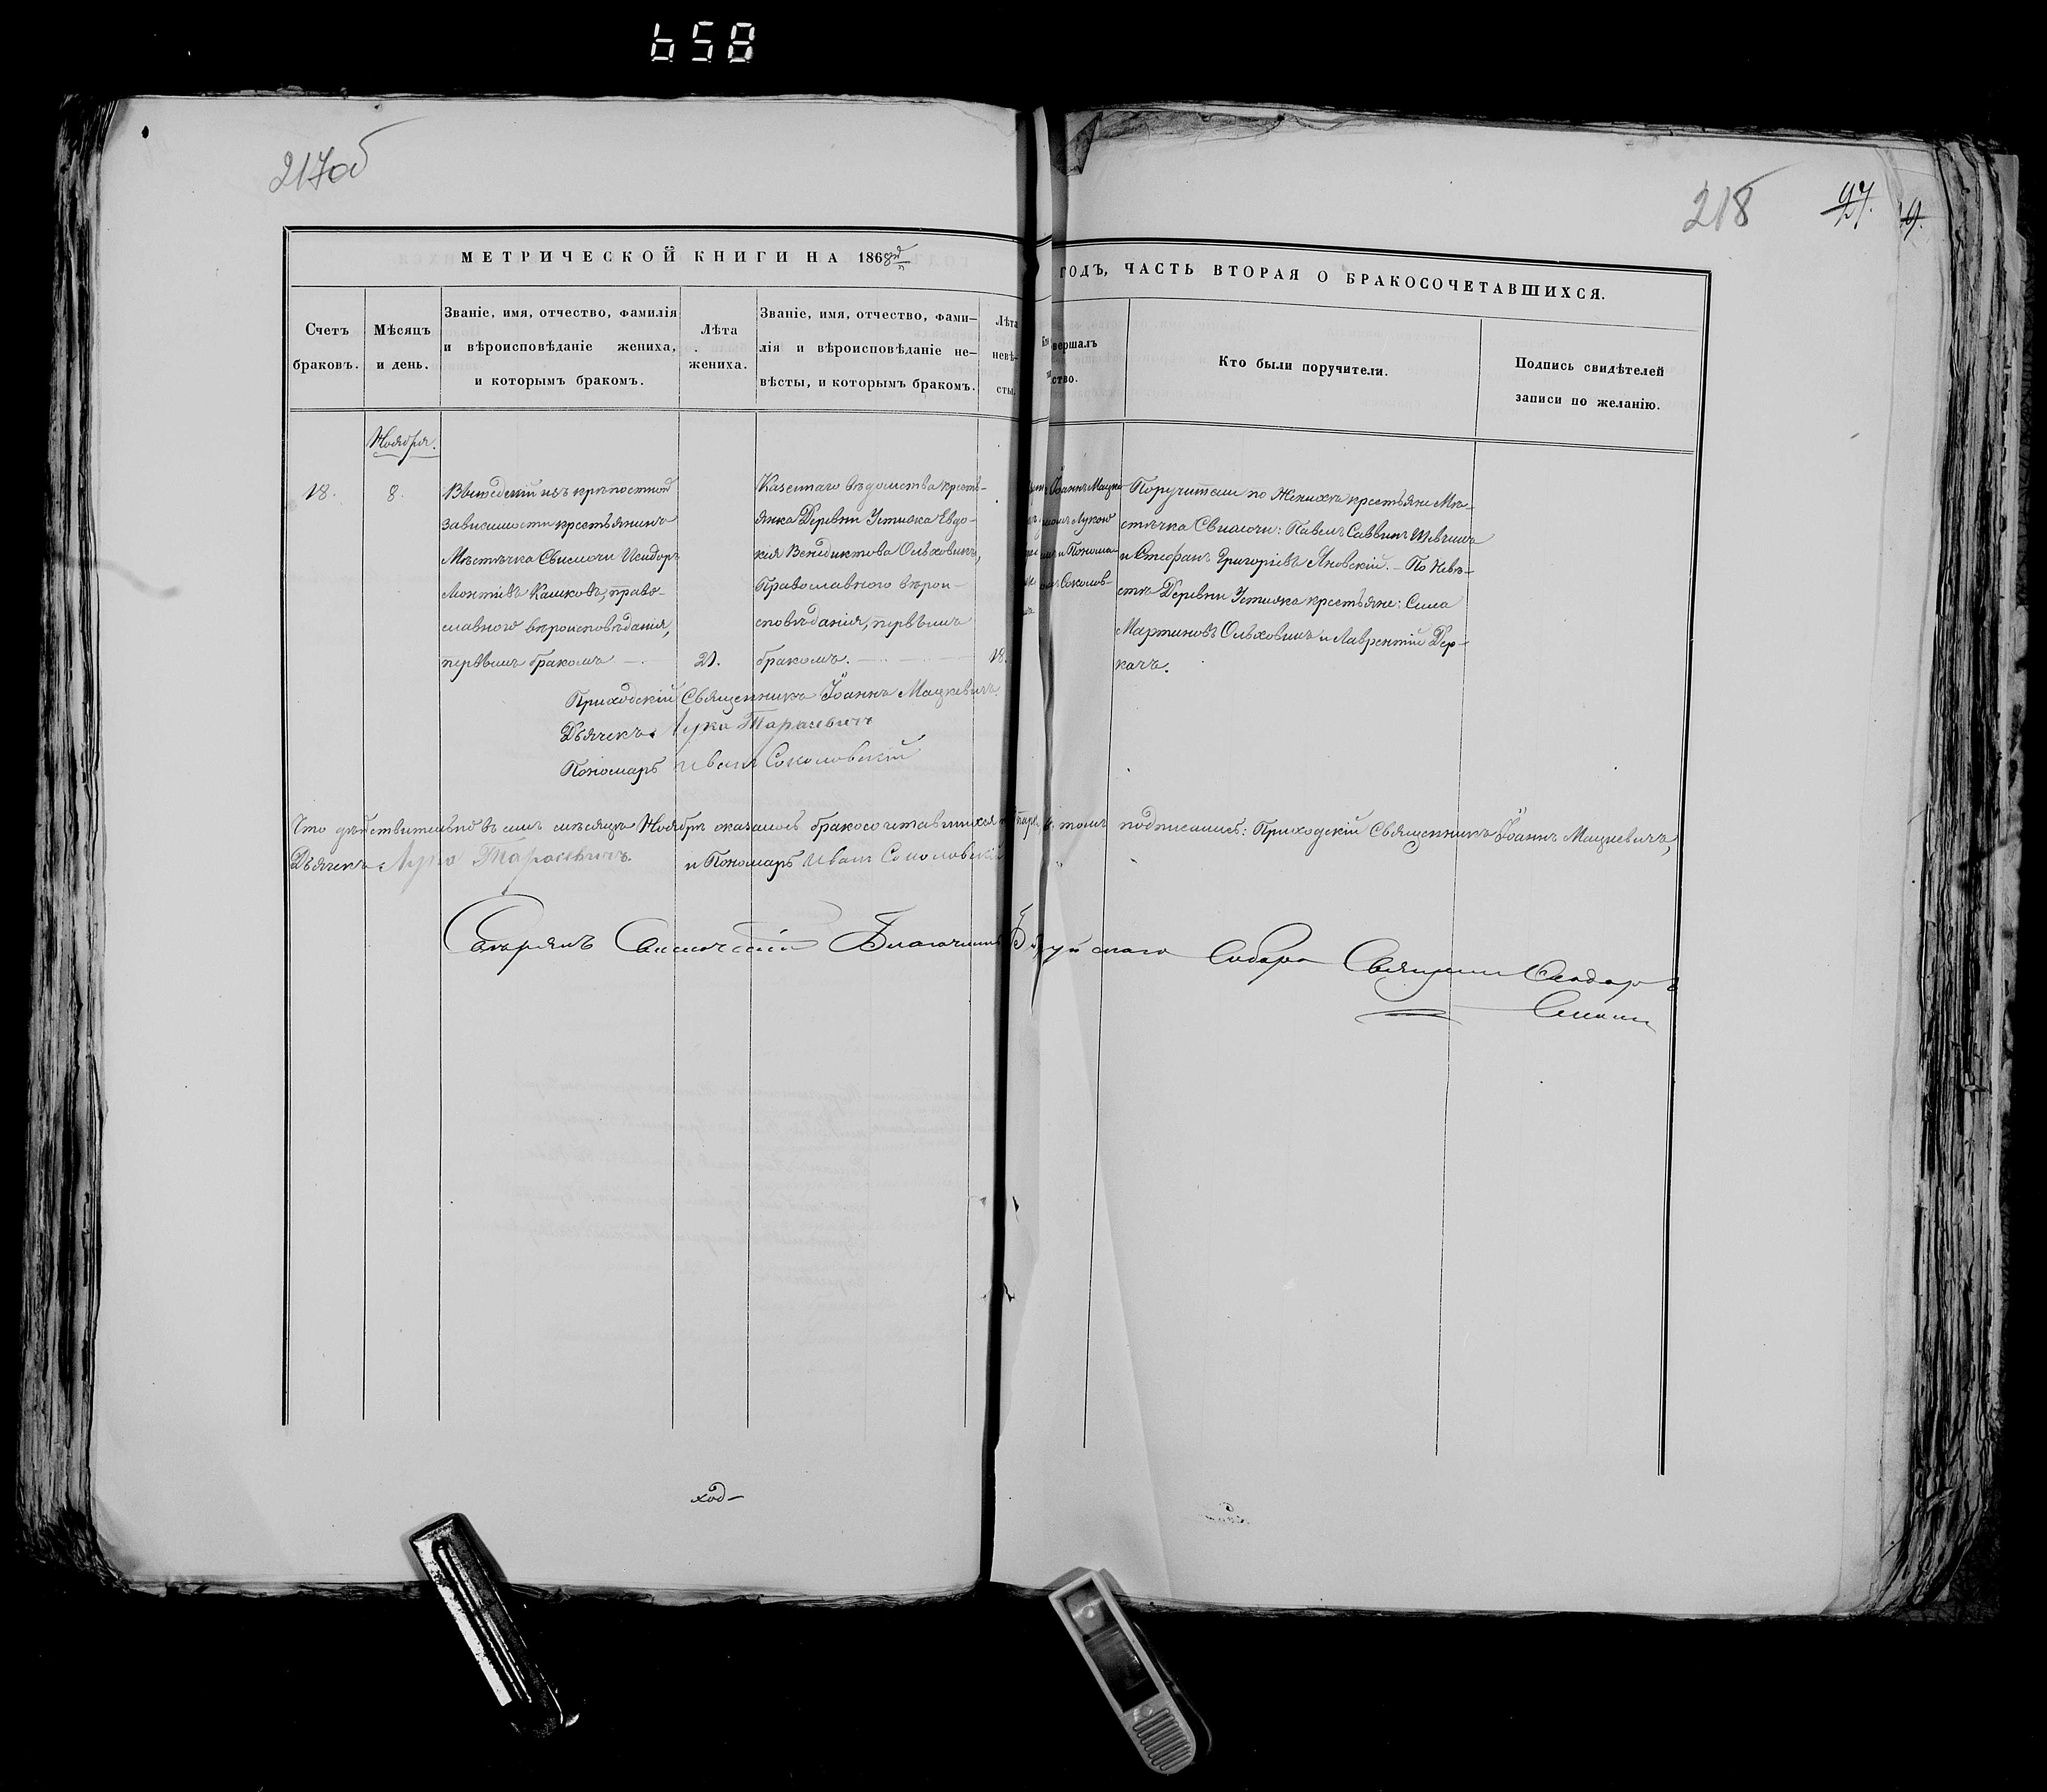 658
217об
218
97.
19.
МЕТРИЧЕСКОЙ КНИГИ НА 1868й
ГОДЪ, ЧАСТЬ ВТОРАЯ О БРАКОСОЧЕТАВШИХСЯ.
Счетъ
браковъ.
Мѣсяцъ
и день.
Званіе, имя, отчество, фамилія
и вѣроисповѣданіе жениха,
и которымъ бракомъ.
Лѣта
жениха.
Званіе, имя, отчество, фами–
лія и вѣроисповѣданіе не–
вѣсты, и которымъ бракомъ.
Лѣта
невѣ-
сты.
вершалъ
ство.
Кто были поручители.
Подпись свидѣтелей
записи по желанію.
Ноября.
18.
8.
Вышедшій изъ крѣпостной
зависимости крестьянинъ
Мѣстечка Свислочи Исидоръ
Леонтіевъ Кашковъ, право-
славного вѣроисповѣданія,
первымъ бракомъ
21.
Казеннаго вѣдомства кресть-
янка Деревни Устижа Евдо-
кія Венедиктова Ольховикъ,
Православного вѣрои-
сповѣданія, первымъ
бракомъ.
18.
Іоаннъ Мацке
Лукою
и Понома
Соколов-
Поручители по Женихѣ крестьяне Мѣ-
стечка Свислочи: Павелъ Саввинъ Шевчикъ
и Стефанъ Григоріевъ Яновскій. – По Невѣ-
стѣ Деревни Устижа крестьяне: Сила
Мартиновъ Ольховикъ и Лаврентій Дер-
качъ.
Приходскій Священникъ Іоаннъ Мацкевичъ.
Дьячекъ Лука Тарасевичъ
Пономарь Иванъ Соколовскій
Что дѣйствительно въ семъ мѣсяцѣ Ноябрѣ оказалось бракосочетавшихся пара, въ томъ подписались: Приходскій Священникъ Іоаннъ Мацкевичъ,
Дьячекъ Лука Тарасевичъ. и Пономарь Иванъ Соколовскій
Свѣрялъ Свислочскій Благочинный Собора Священникъ Ѳеодоръ
ход–